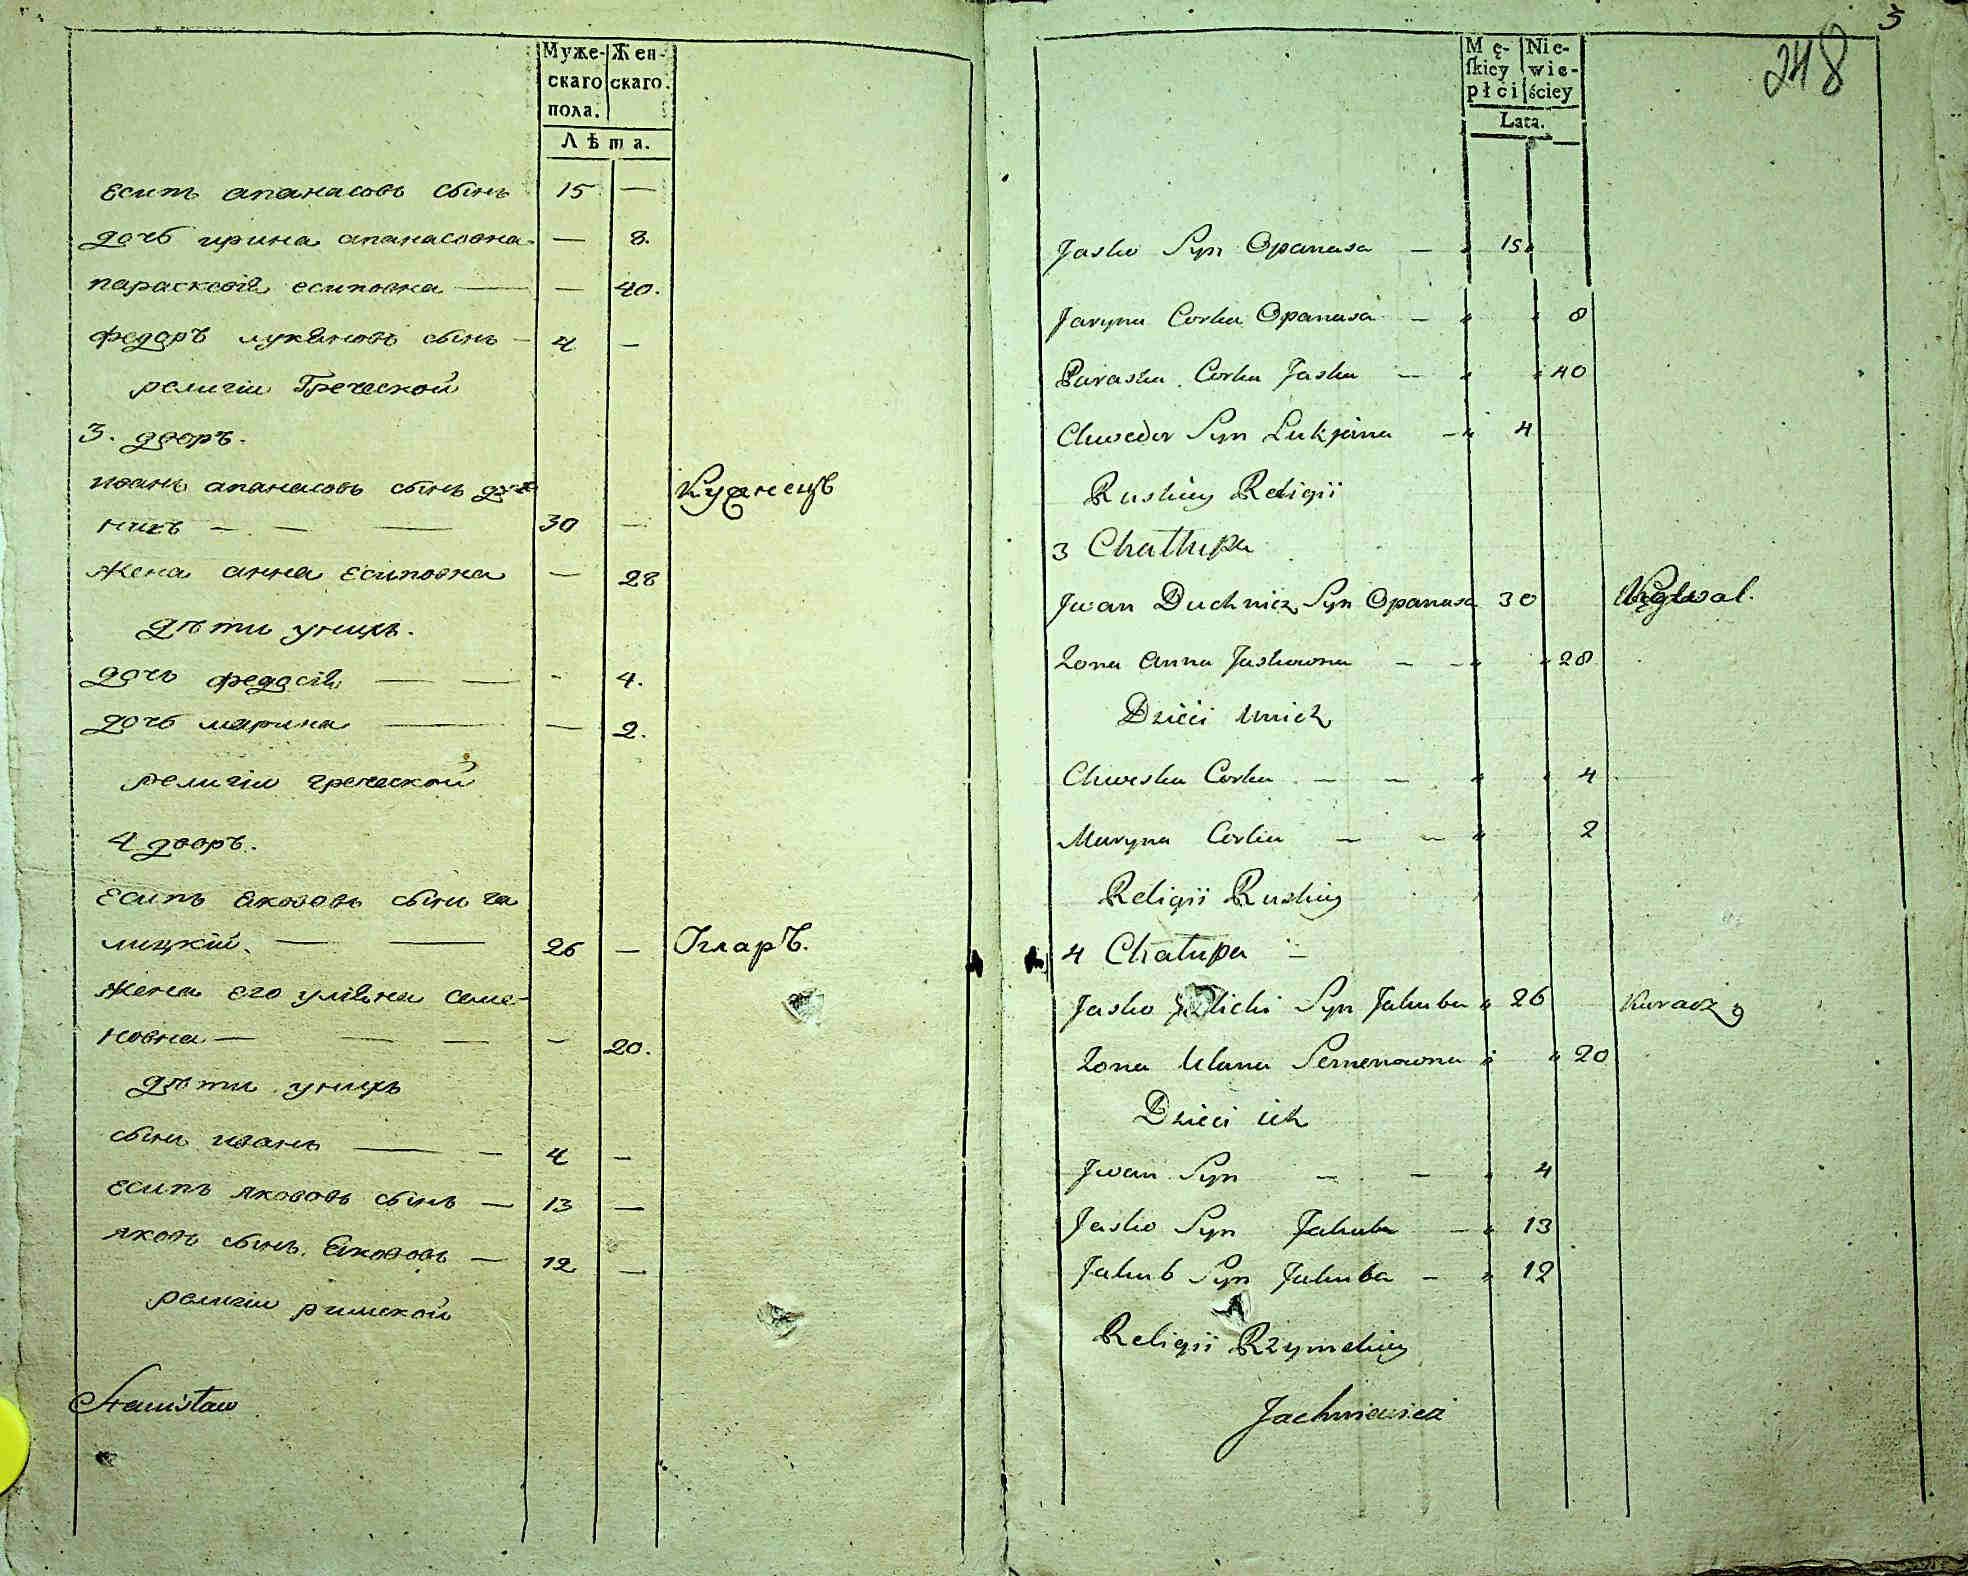 Муже-
скаго
пола.
Жен-
скаго.
Лѣта.
есипъ апанасовъ сынъ 15 —
дочь ирина апанасовна — — 8.
параскевія есиповна — — 40.
федоръ лукяновъ сынъ — 4 —
религіи Греческой
3. дворъ.
иванъ апанасовъ сынъ дух
никъ — — — 30 — Кузнецъ
жена анна есиповна — 28
дѣти унихъ.
дочь федосія — — - 4.
дочь марина — — 2.
религіи греческой
4 дворъ.
есипъ якововъ сынъ га
лицкій. — — 26 — Огларъ.
жена его уляна семе-
новна — — — - 20.
дѣти унихъ
сынъ иванъ — - 4 —
есипъ якововъ сынъ — 13 —
яковъ сынъ якововъ — 12 —
религіи римской
Stanisław
5
248
Mę-
skiey
płci
Nie-
wie-
ściey
Lata.
Jasko Syn Opanasa — " 15 "
Jaryna Corka Opanasa — " " 8
Paraska Corka Jaska — " " 40
Chwedor Syn Lukjana — " 4
Ruskiey Religii
3 Chałupa
Jwan Duchnicz Syn Opanasa 30 Kowal.
Zona Anna Jaskowna — — " " 28
Dzieci unich
Chweska Corka — — " " 4
Maryna Corka — — " 2
Religii Ruskiey
4 Chałupa —
Jasko Syn Jakuba " 26
Zona Ulana Semenowna " " 20
Dzieci ich
Jwan Syn — — " 4
Jasko Syn Jakuba — " 13
Jakub Syn Jakuba — " 12
Religii Rzymskiey
Jachniewicz